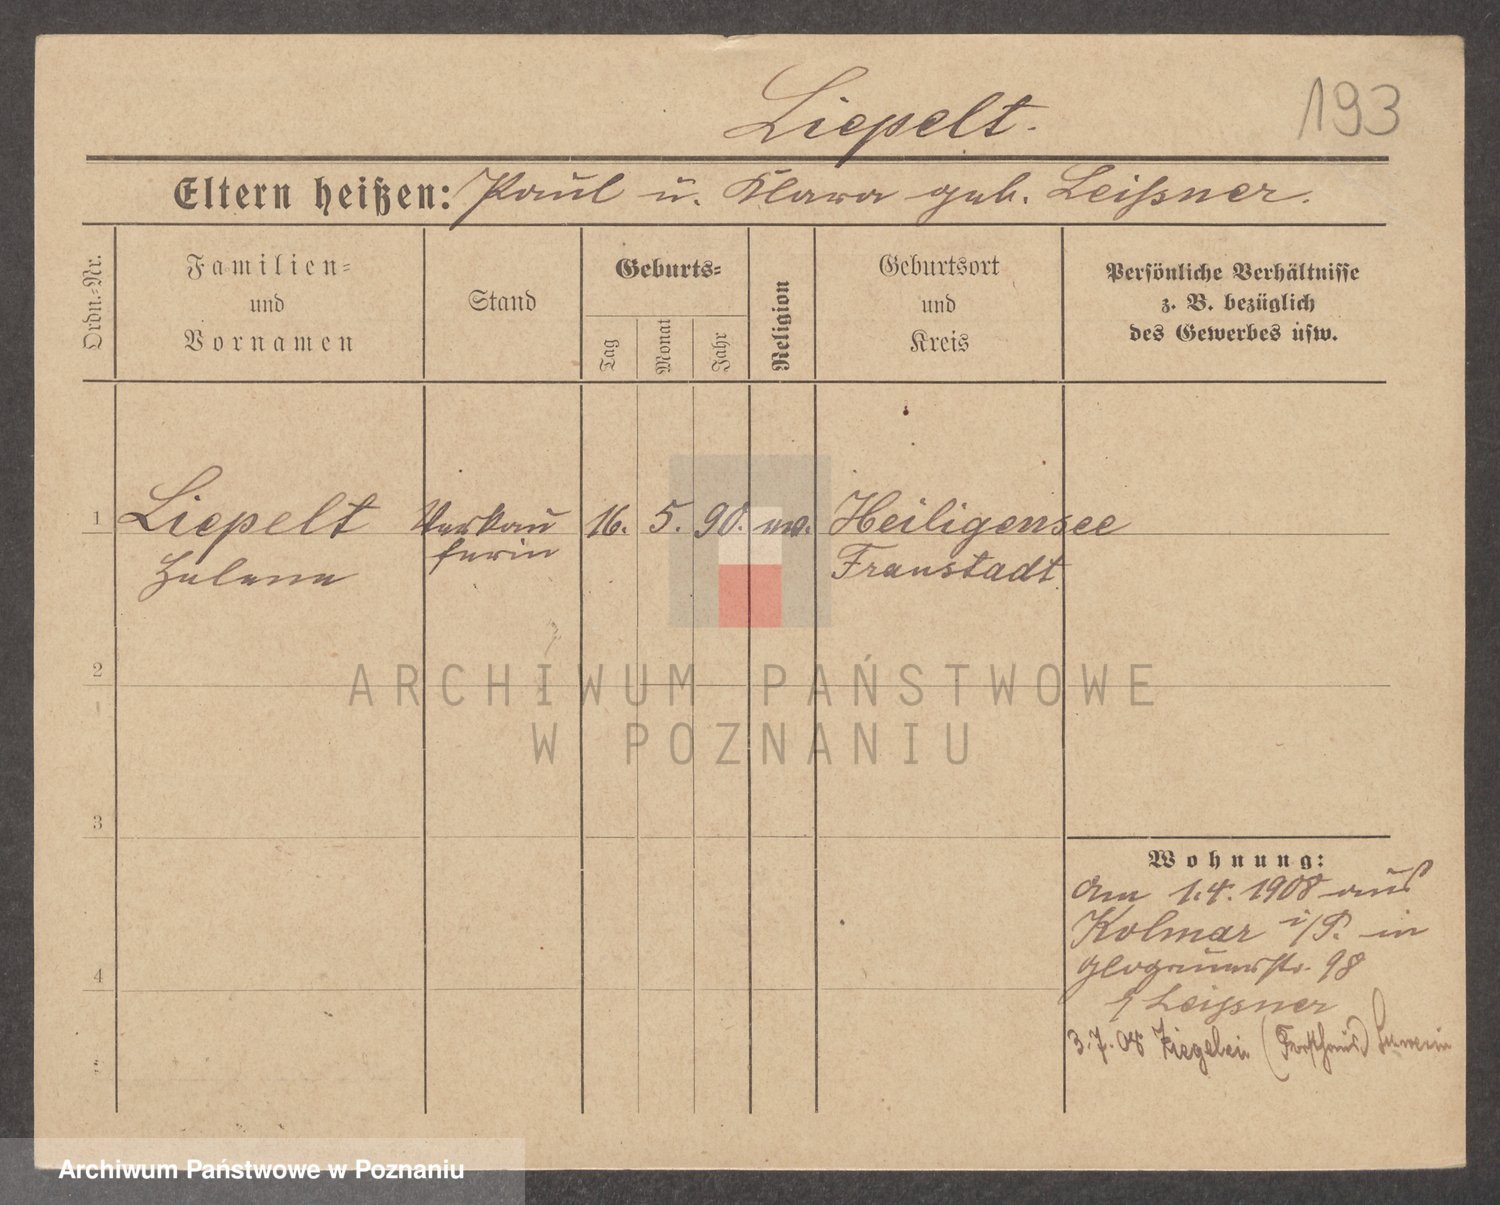 Liepelt.
193
Eltern heißen: Paul u. Klara geb. Leißner.
Ordn.-Nr.
Familien-
und
Vornamen
Stand
Geburts-
Tag
Monat
Jahr
Religion
Geburtsort
und
Kreis
Persönliche Verhältnisse
z. B. bezüglich
des Gewerbes usw.
1
Liepelt
Helene
Verkäu
ferin
16. 5. 90. ev.
Heiligensee
Fraustadt
2
3
4
5
Wohnung:
Am 1.4. 1908 aus
Kolmar i/P. in
Glogauerstr. 98
Leißner
3.7.08 (Forsthaus)
ARCHIWUM PAŃSTWOWE
W POZNANIU
Archiwum Państwowe w Poznaniu